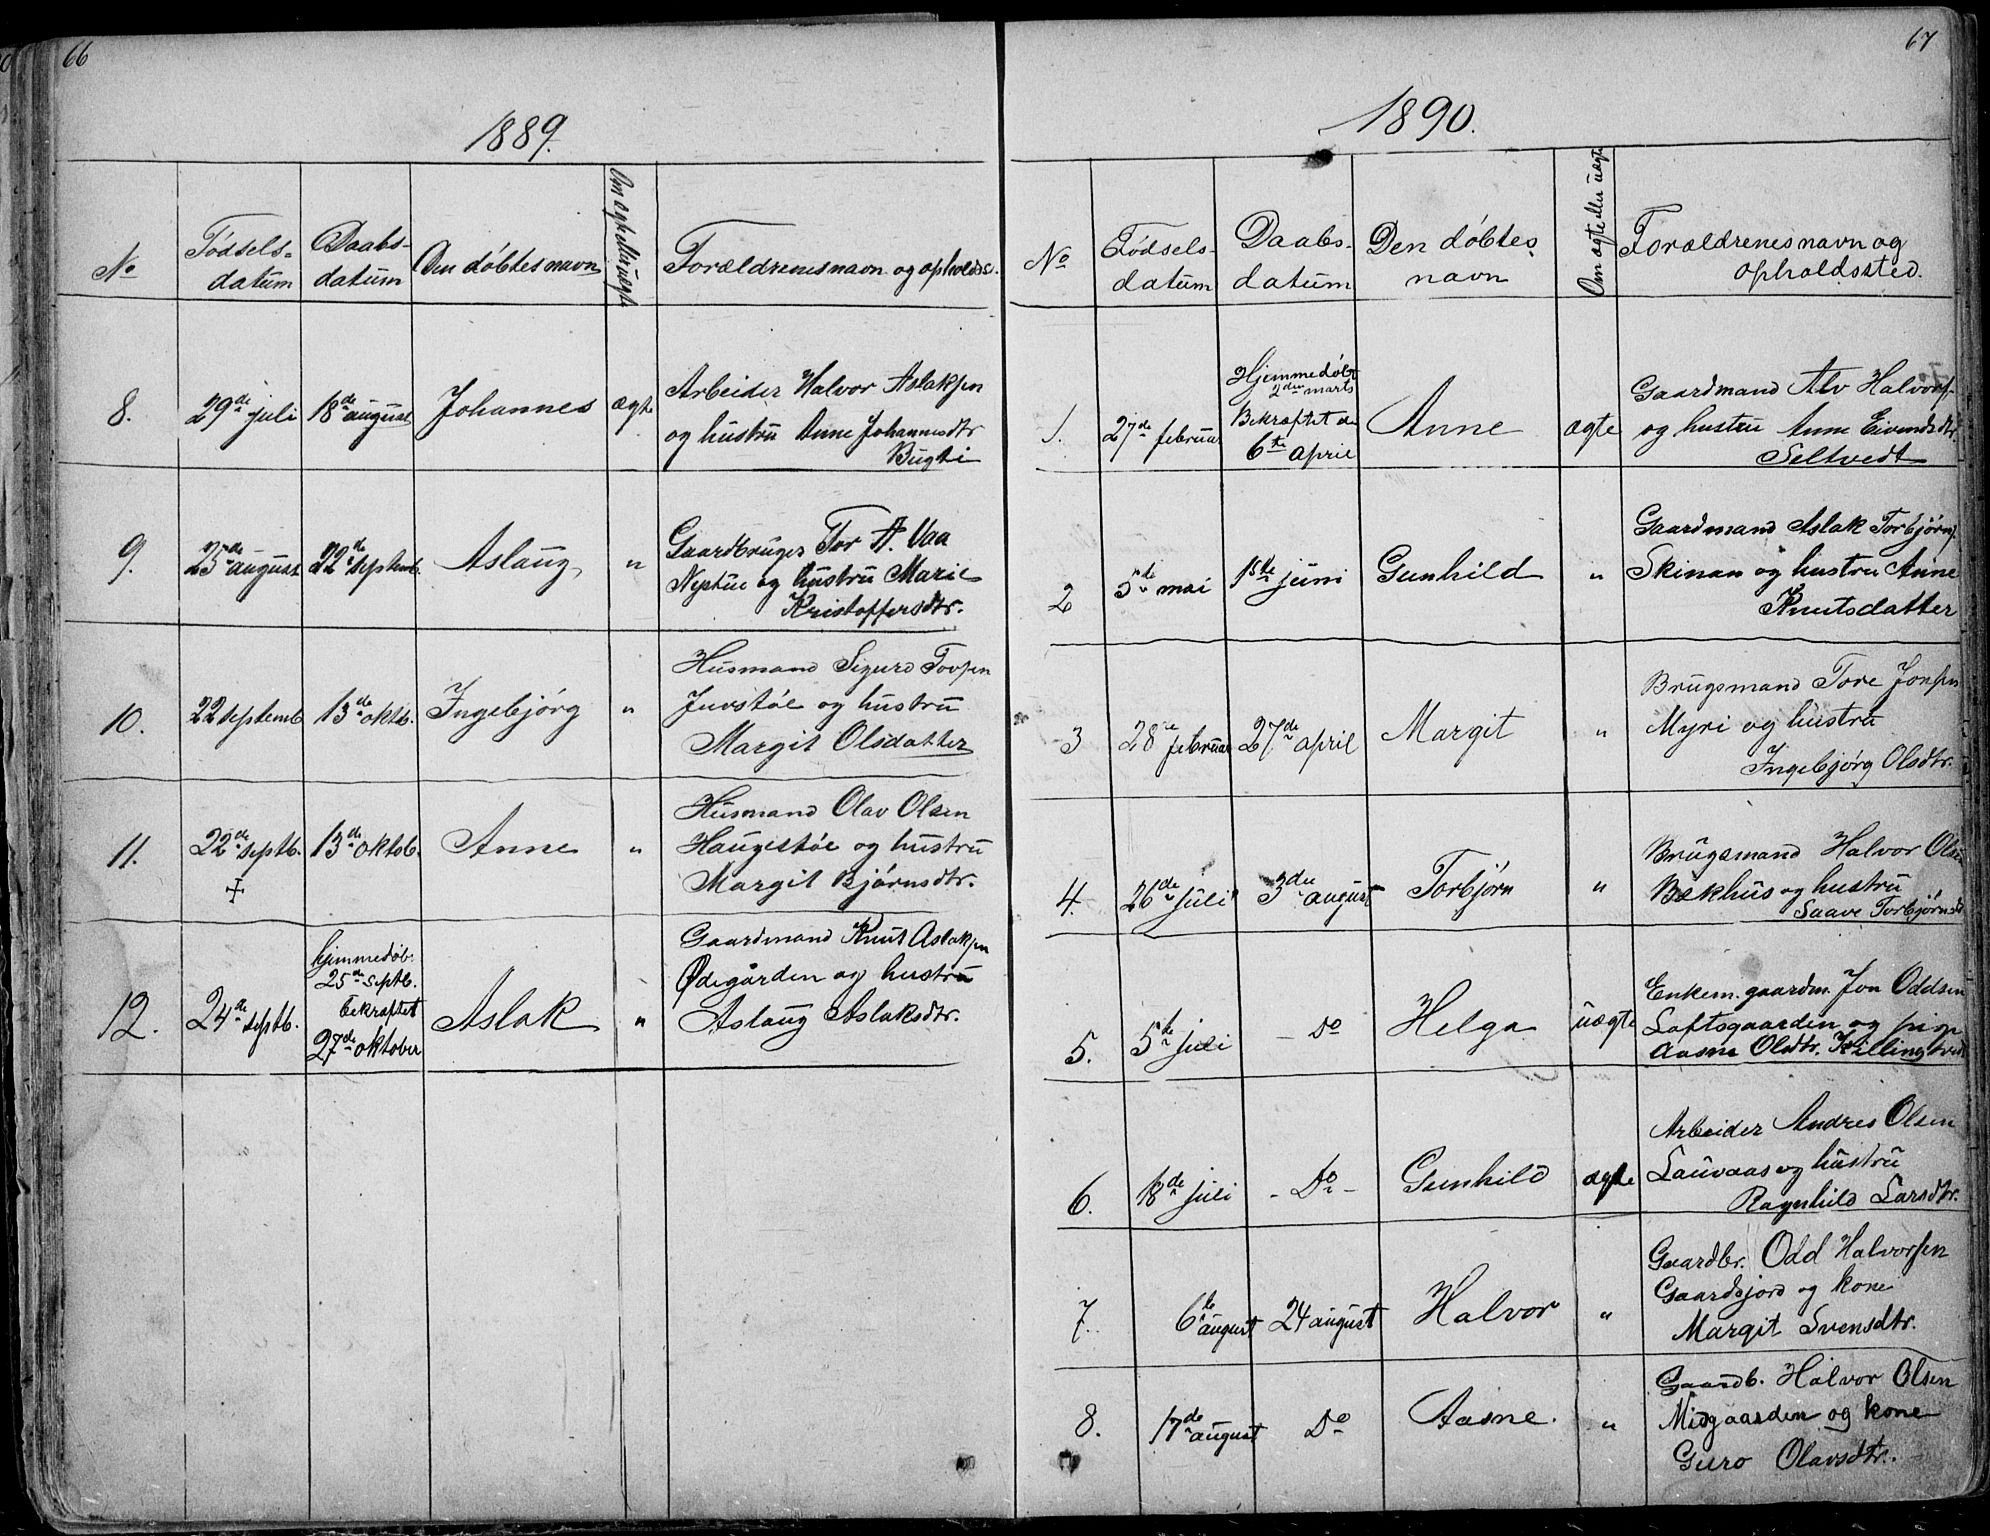 66
1889.
No
Fødsels-
datum
Daabs-
datum
Den døbtes navn
Om ægte eller uægte
Forældrenes navn og opholdss.
8.
29de juli
18de august
Johannes
ægte
Arbeider Halvor Aslaksen
og hustru Anne Johannesdtr
Bugti
9.
25de august
22de septemb.
Aslaug
"
Gaardbruger Tor A. Vaa
Nestue og hustru Marie
Kristoffersdtr.
10.
22 septemb
13de oktb.
Ingebjørg
"
Husmand Sigurd Tovsen
Juvstøe og hustru
Margit Olsdatter
11.
22de septb.
13de oktob.
Anne
"
Husmand Olav Olsen
Haugestøe og hustru
Margit Bjørnsdtr.
12.
24de septb.
hjemmedøb.
25de septb.
bekræftet
27de oktober
Aslak
"
Gaardmand Knut Aslaksen
Ødegården og hustru
Aslaug Aslaksdtr.
67
1890.
No
Fødsels-
datum
Daabs-
datum
Den døbtes
navn
Om ægte eller uægte
Forældrenes navn og
opholdssted.
1.
27de februar
Hjemmedøbt
2den marts
Bekræftet de
6te april
Anne
ægte
Gaardmand Alv Halvors.
og hustru Anne Eivendsdtr
Seltvedt
2
5te mai
1ste juni
Gunhild
"
Gaardmand Aslak Torbjørns.
Skinan og hustru Anne
Knutsdatter
3
28de februar
27de april
Margit
"
Brugsmand Tore Jonsen
Myri og hustru
Ingebjørg Olsdtr.
4.
26de juli
3die august
Torbjørn
"
Brugsmand Halvor Olsen
Bekhus og hustru
Saave Torbjørnsd
5.
5te juli
- Do
Helga
uægte
Enkem. gaardm. Jon Oddsen
Loftsgaarden og pige
Aasne Olsdtr. Killingtveit
6.
18de juli
- Do -
Gunhild
ægte
Arbeider Andres Olsen
Lauvaas og hustru
Ragnhild Larsdtr.
7.
6te august
24 august
Halvor
"
Gaardbr. Odd Halvorsen
Gaardsjord og kone
Margit Svensdtr.
8.
17de august
Do
Aasne.
"
Gaardb. Halvor Olsen
Midgaarden og kone
Guro Olavsdtr.